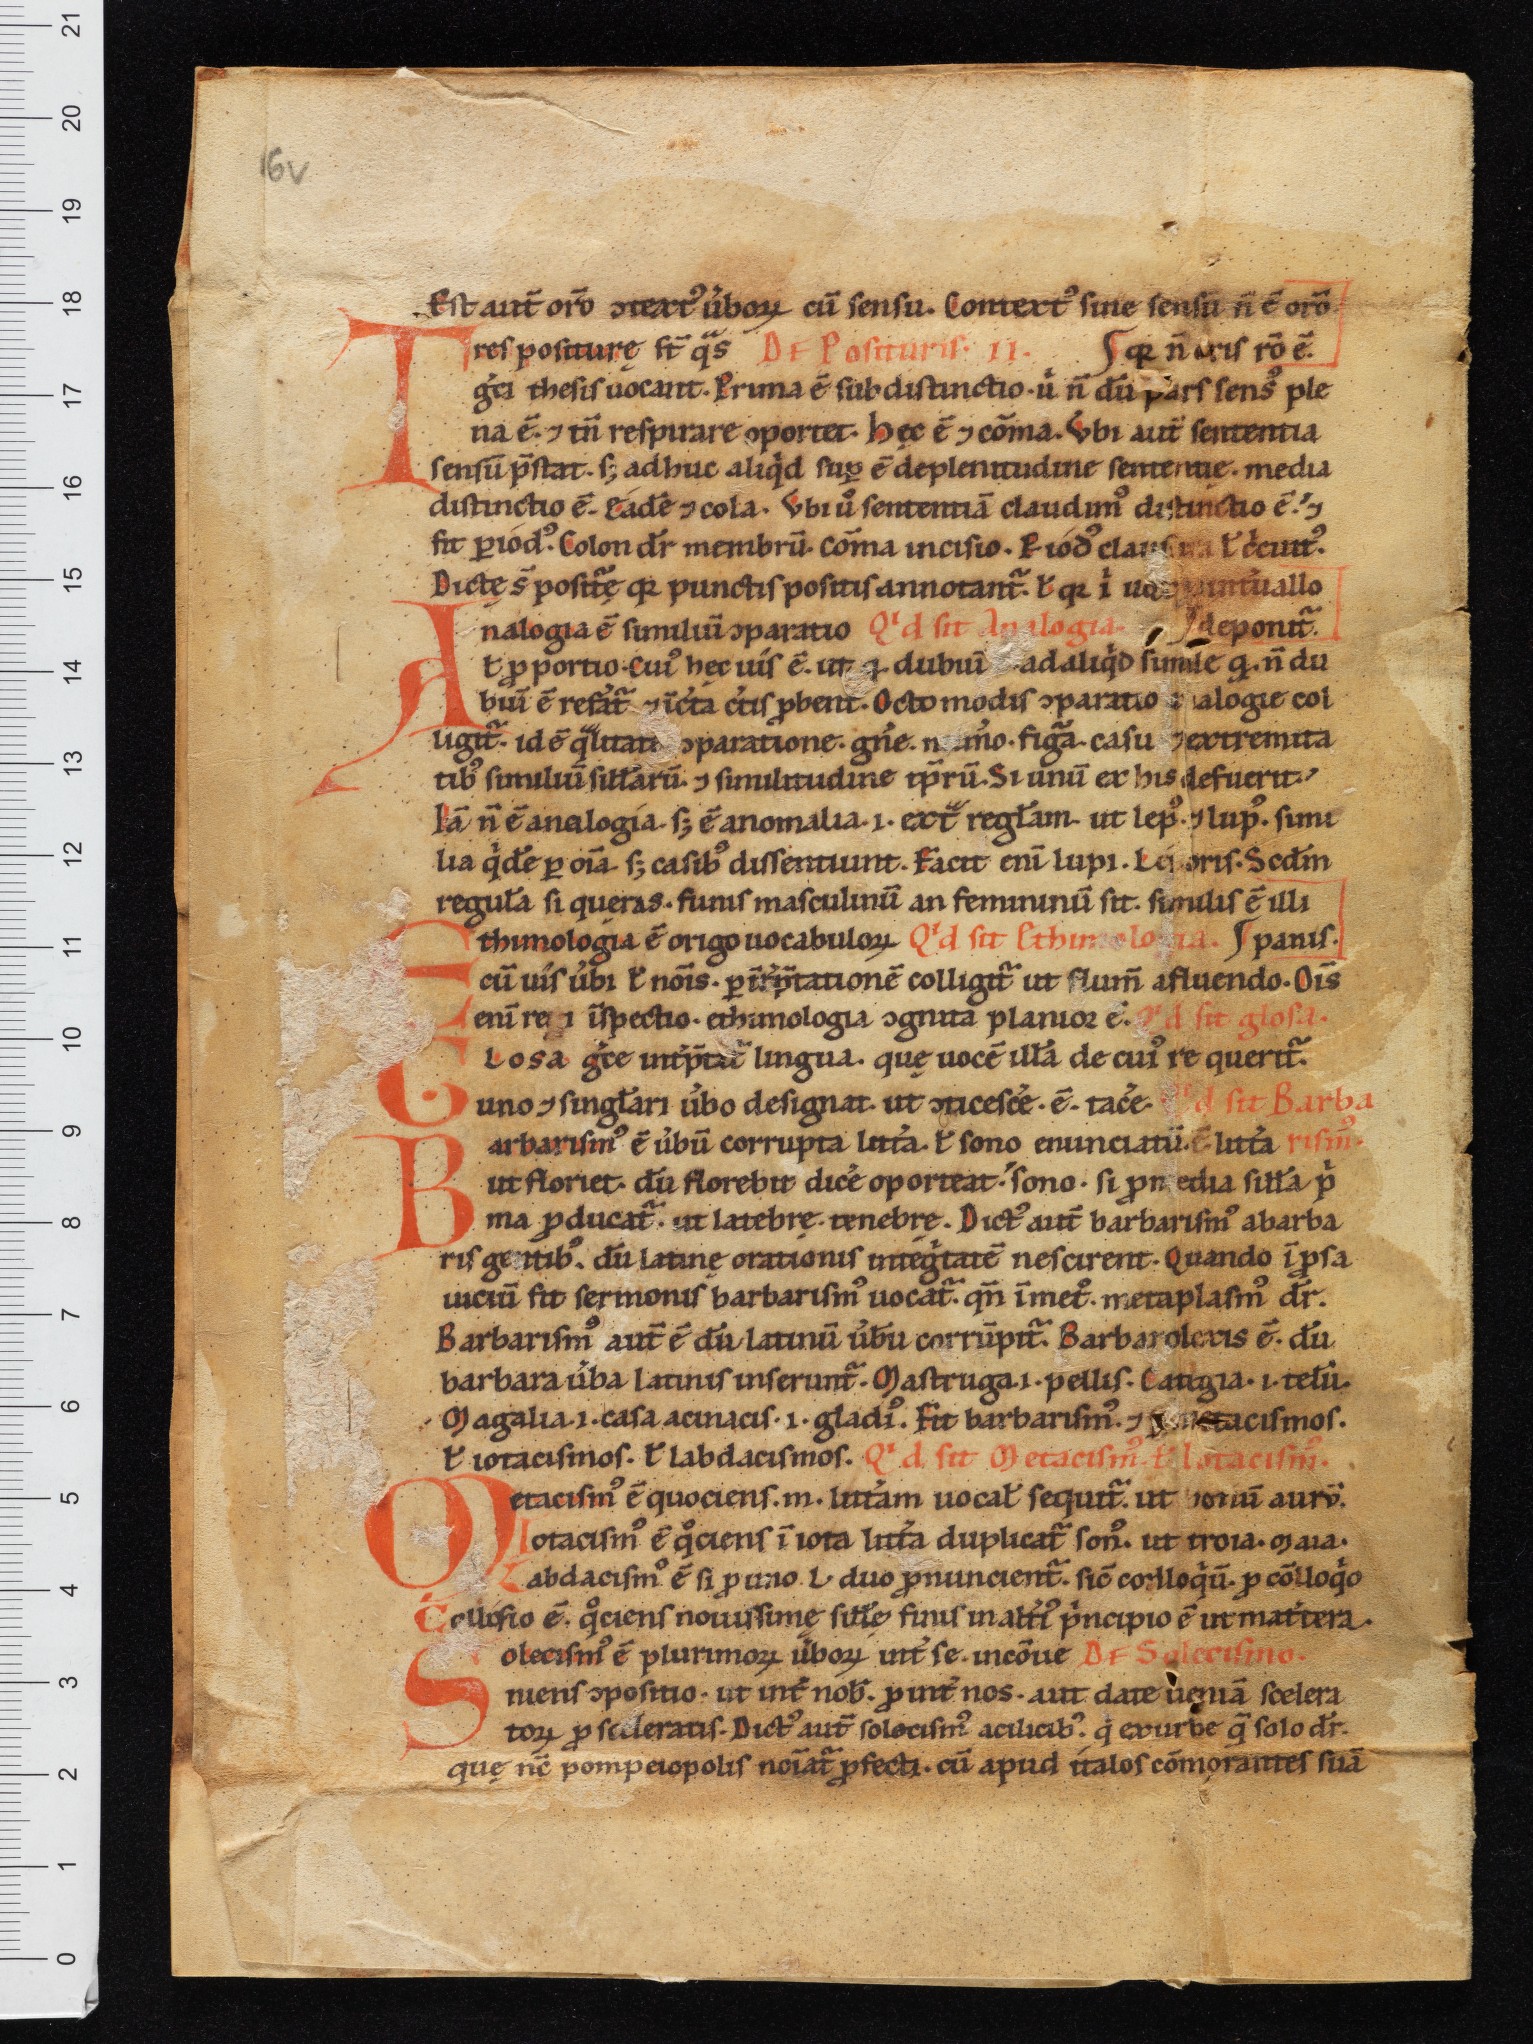 16v
Est aut̄ or̄o ↄtextꝰ úboꝝ cū sensu. Contextꝰ sine sensu n̄ ē or̄o.
Tres positurę st̄ qͣs DE Posituris. II. qꝛ n̄ oris rō ē.
gͥci thesis uocant. Prima ē subdistinctio. ú n̄ dū pars sensꝰ ple
na ē. ⁊ tn̄ respirare oportet. hęc ē ⁊ cōma. Vbi aut̄ sententia
sensū p̄stat. sꝫ adhuc aliqͥd suꝑ ē de plenitudine sententie. media
distinctio ē. Eadē ⁊ cola. Vbi uͦ sententiā claudimꝰ distinctio ē. ⁊
fit ꝑiodꝰ. Colon dr̄ membrū. Cōma incisio.
Dictę s̄ positᷓę qꝛ punctis positis annotantᷓ. ł qꝛ ibi intuallo
Analogia ē similiū ↄparatio Qͥd sit Analogia. deponitᷓ.
ł ꝓportio. Cuiꝰ hęc uis ē. ut qd dubiū ad aliqͥd simile q. n̄ du
biū ē refatᷓ ⁊ īcta ctis ꝓbent. Octo modis ↄparatio alogie col
ligitᷓ. id ē qͣlitatis ↄparatione. gn̄e. figᷓa. casu ⁊ extremita
tibꝰ similiū silłarū. ⁊ similitudine tp̄rū. Si unū ex his defuerit
Iā n̄ ē analogia. sꝫ ē anomalia .i. extᷓ regłam. ut lepꝰ. ⁊ lupꝰ. simi
lia qͥdē ꝑ oīa. sꝫ casibꝰ dissentiunt. Facit enī lupi. Leporis. Scdm̄
reguła si queras. funis masculinū an femininū sit. similis ē illi
Ethimologia ē origo uocabuloꝝ Qͥd sit Ethimologia. panis.
cū uis úbi ł nōis. ꝑ intp̄tationē colligitᷓ ut flum̄ a fluendo. Oīs
enī rei īspectio. ethimologia ↄgnita planior ē. Qͥd sit glosa.
Glosa gͥce intp̄tatᷓ lingua. quę uocē illā de cuiꝰ re queritᷓ.
uno ⁊ singłari úbo designat. ut ↄticescē. ē. tacē. Qͥd sit Barba
Barbarismꝰ ē úbū corrupta littá. ł sono enunciatū. littá rismꝰ.
ut floriet. dū florebit dicē oporteat. sono. si ꝓ media silła pͥ
ma ꝓducatᷓ. ut latebrę. tenebrę. Dictꝰ aut̄ barbarismꝰ a barba
ris gentibꝰ. dū latinę orationis integͥtatē nescirent. Quando ī ꝓsa
uiciū fit sermonis barbarismꝰ uocatᷓ. qn̄ ī metꝰ. metaplasmꝰ dr̄.
Barbarismꝰ aut̄ ē dū latinū úbū corrūpitᷓ. Barbarolexis ē. dū
barbara úba latinis inseruntᷓ. Mastruga .i. pellis. Categia .i. telū.
Magalia .i. casa acinacis .i. gladiꝰ. Fit barbarismꝰ. ⁊ metacismos.
ł iotacismos. ł labdacismos. Qͥd sit Metacismꝰ. ł Iotacismꝰ.
Metacismꝰ ē quociens .m. littám uocał sequitᷓ. ut bonū aurū.
Iotacismꝰ ē qͦciens ī iota littá duplicatᷓ sonꝰ. ut troia. maia.
Labdacismꝰ ē si ꝓ uno L duo ꝓnuncientᷓ. sic̄ colloqͥū. ꝓ cōlloqͥo
Collisio ē. qͦciens nouissimę siłłę finis in altiꝰ pͥncipio ē ut mat́ tera.
Solecismꝰ ē plurimoꝝ úboꝝ int́ se. incōue DE Solecismo.
niens ↄpositio. ut int́ nob̄. ꝓ int́ nos. aut date ueniā scelera
toꝝ ꝓ sceleratis. Dictꝰ aut̄ solocismꝰ a cilicibꝰ. qͥ ex urbe qͣ solo dr̄.
quę nc̄ pompeiopolis noīatᷓ ꝓfecti. cū apud italos cōmorantes suā